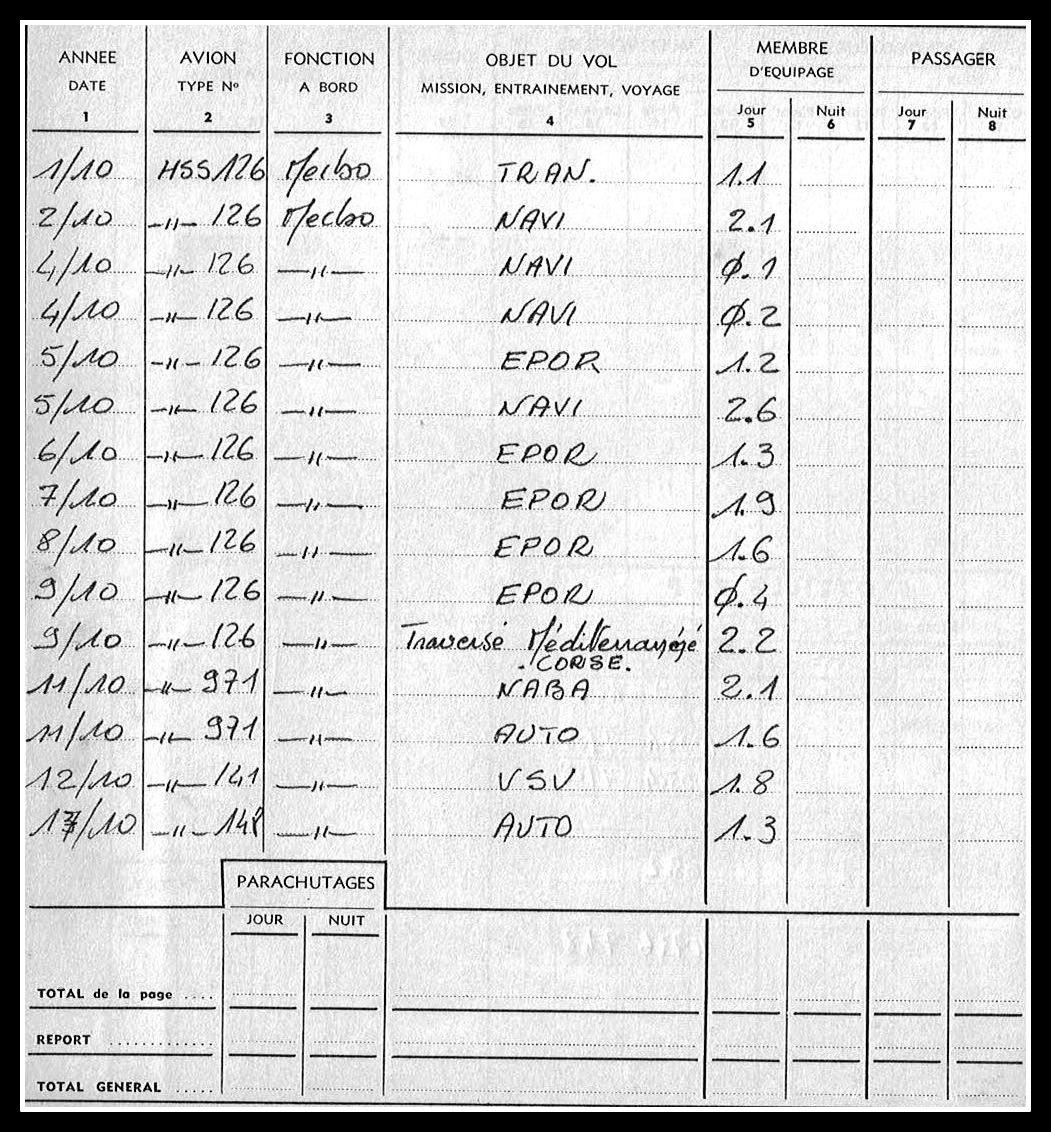 ANNEE AVION FONCTION OBJET DU VOL MEMBRE D'EQUIPAGE PASSAGER
DATE TYPE Nº A BORD MISSION, ENTRAINEMENT, VOYAGE Jour Nuit Jour Nuit
1 2 3 4 5 6 7 8
1/10 HSS 126 Mecbo TRAN. 1.1
2/10 —〃— 126 Mecbo NAVI 2.1
4/10 —〃— 126 —〃— NAVI Ø.1
4/10 —〃— 126 —〃— NAVI Ø.2
5/10 —〃— 126 —〃— EPOR 1.2
5/10 —〃— 126 —〃— NAVI 2.6
6/10 —〃— 126 —〃— EPOR 1.3
7/10 —〃— 126 —〃— EPOR 1.9
8/10 —〃— 126 —〃— EPOR 1.6
9/10 —〃— 126 —〃— EPOR Ø.4
9/10 —〃— 126 —〃— Traversé Méditerranéé 2.2
. CORSE.
11/10 —〃— 971 —〃— NABA 2.1
11/10 —〃— 971 —〃— AUTO 1.6
12/10 —〃— 141 —〃— VSV 1.8
/10 —〃— —〃— AUTO 1.3
PARACHUTAGES
JOUR NUIT
TOTAL de la page ....
REPORT ............
TOTAL GENERAL .....